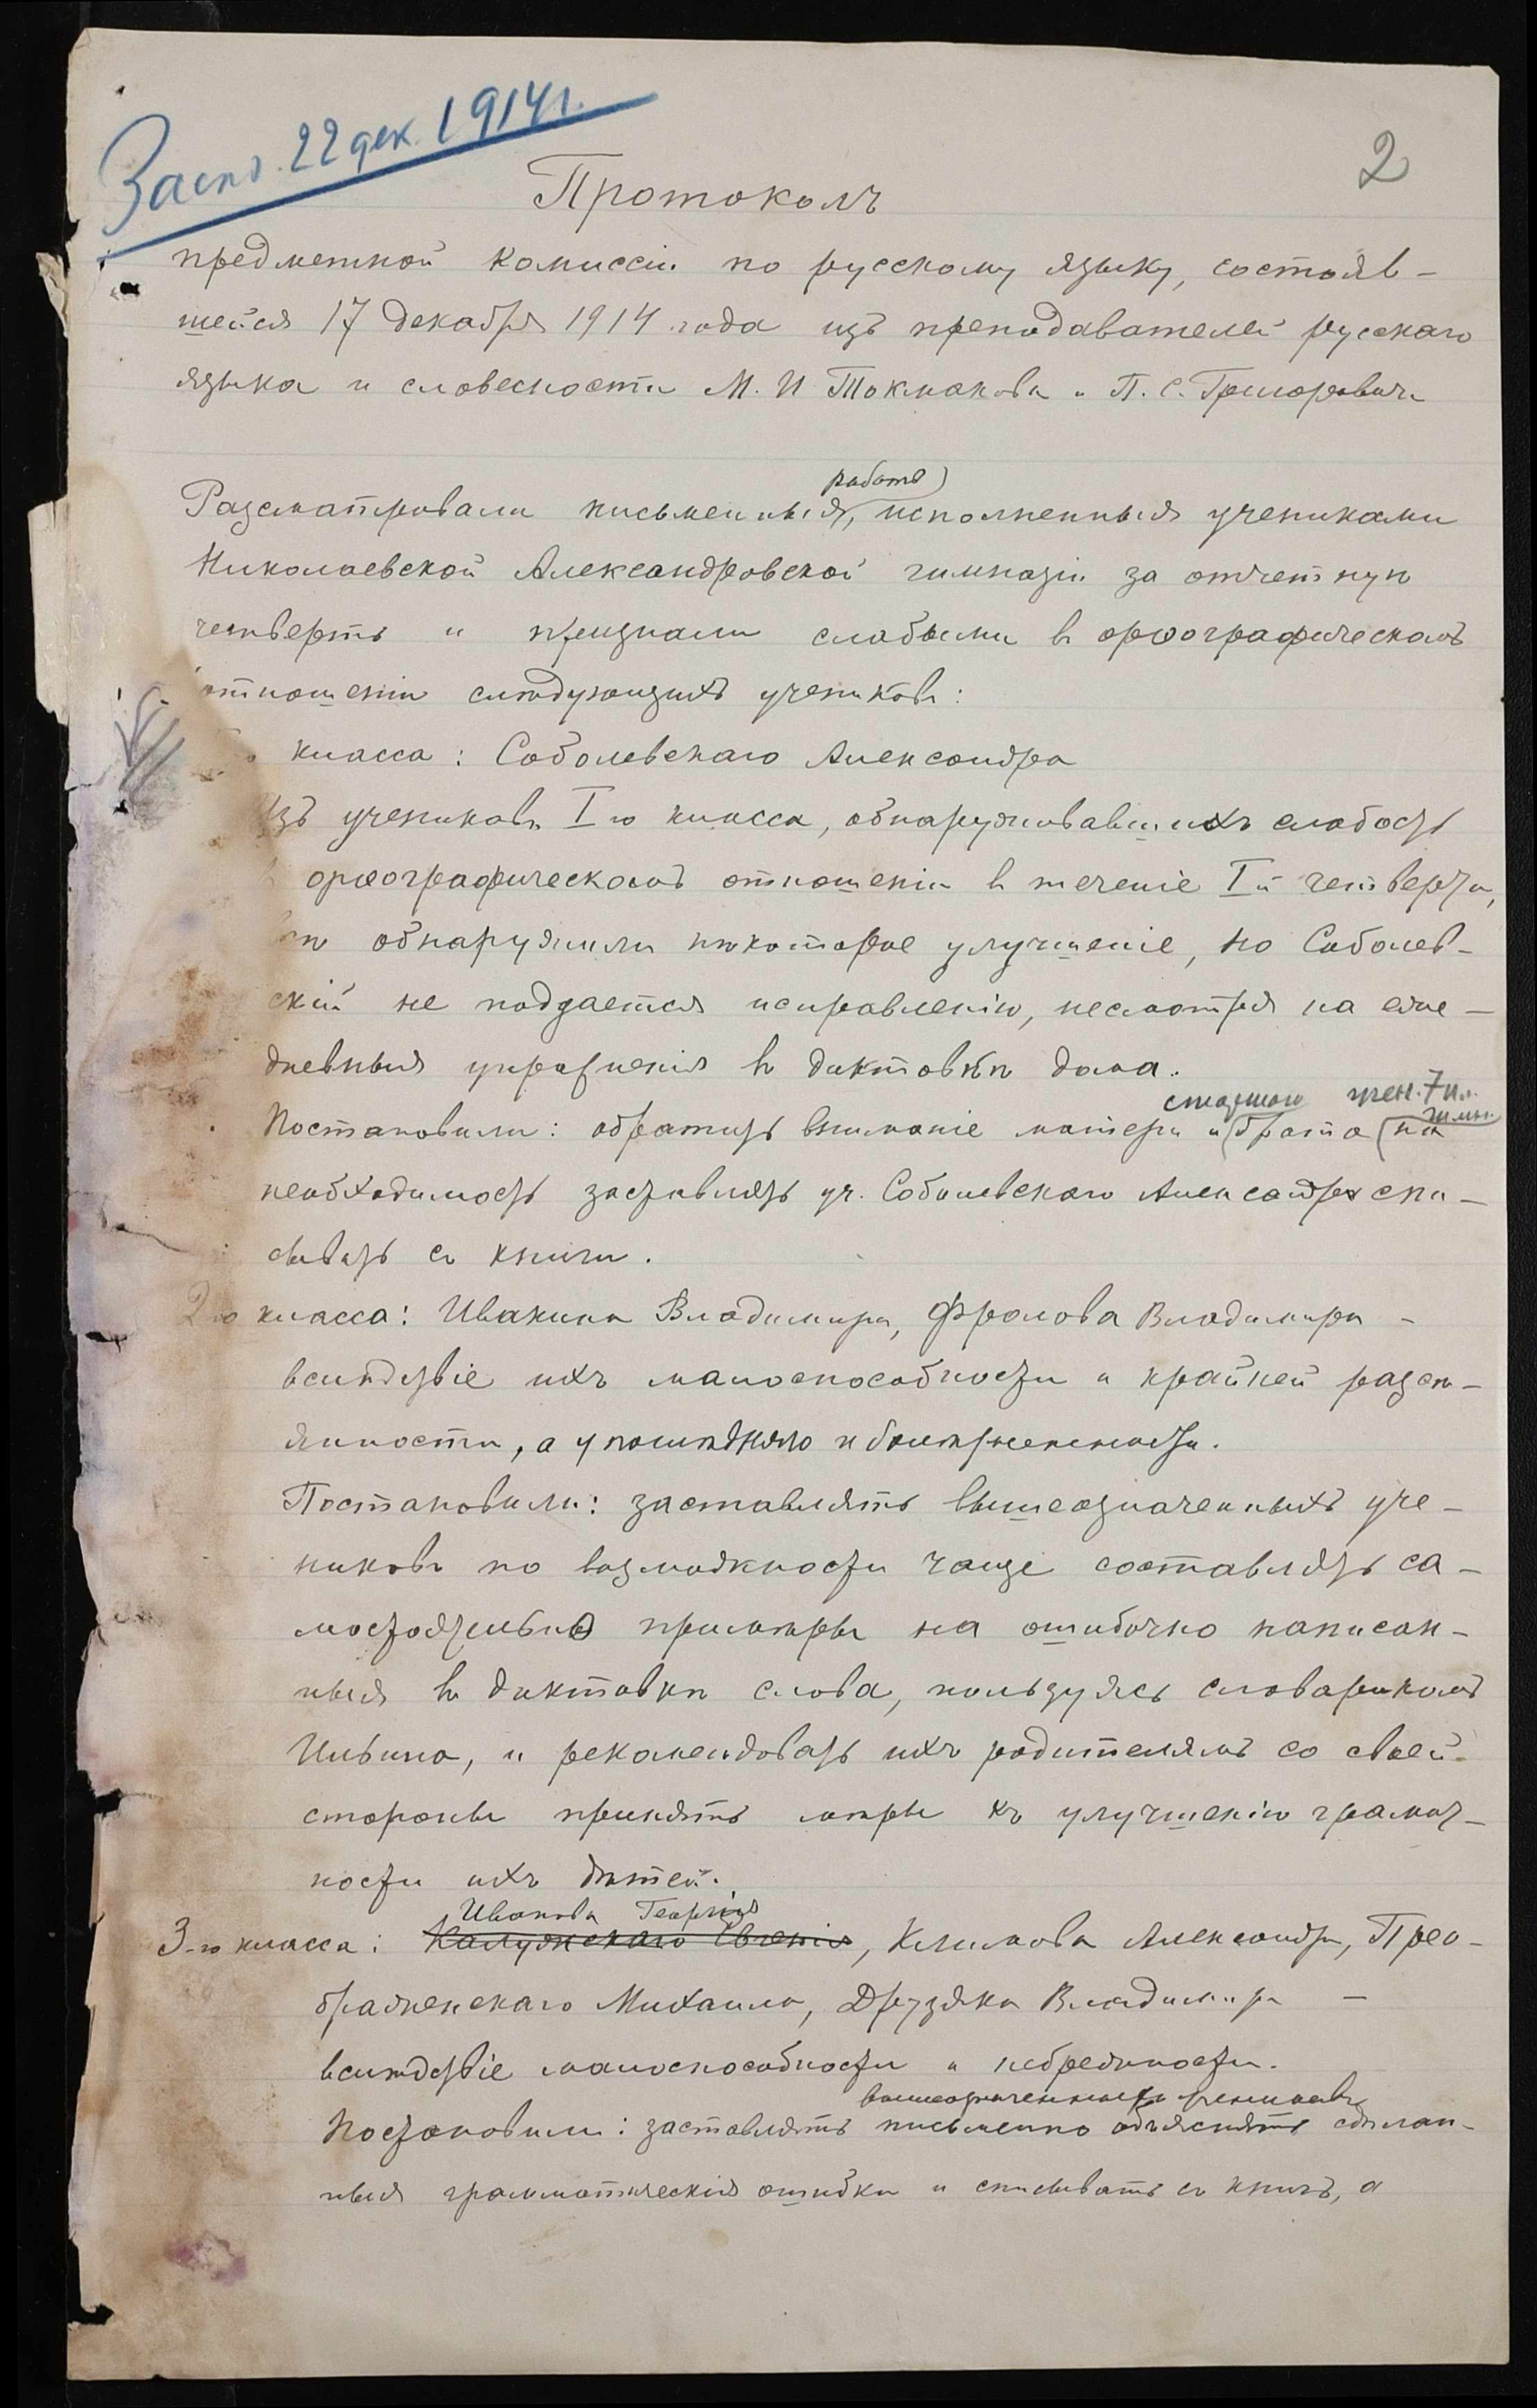 Засѣд. 22 дек. 1914 г.
2
Протоколъ
предметной комиссіи по русскому языку, состояв-
шейся 17 декабря 1914 года изъ преподавателей русскаго
языка и словесности М. И Токмакова и П. С. Григоровича
работы
Разсматривали письменныя, исполненныя учениками
Николаевской Александровской гимназіи за отчетную
четверть и признали слабыми въ орѳографическомъ
отношеніи слѣдующихъ учениковъ:
класса: Соболевскаго Александра
Изъ учениковъ I го класса, обнаруживавшихъ слабость
орѳографическомъ отношеніи въ теченіе I й четверти,
обнаружили нѣкоторое улучшеніе, но Соболев-
скій не поддается исправленію, несмотря на еже-
дневныя упражненія въ диктовкѣ дома.
старшаго учен. 7 кл. гимн.
Постановили: обратить вниманіе матери и брата на
необходимость заставлять уч. Соболевскаго Александра спи-
сывать съ книги.
2го класса: Ивакина Владимира, Фролова Владимира -
вслѣдствіе ихъ малоспособности и крайней разсѣ-
янности, а у послѣдняго и болѣзненности.
Постановили: заставлять вышеозначенныхъ уче-
никовъ по возможности чаще составлять са-
мостоятельно примѣры на ошибочно написан-
ныя въ диктовкѣ слова, пользуясь словарикомъ
Ильина, и рекомендовать ихъ родителямъ со своей
стороны принять мѣры къ улучшенію грамот-
ности ихъ дѣтей.
Иванова Георгія
3-го класса: Калужскаго Евгенія, Климова Александра, Прео-
браженскаго Михаила, Друзяка Владимира -
вслѣдствіе малоспособности и небрежности.
вышеозначенныхъ учениковъ
Постановили: заставлять письменно объяснять сдѣлан-
ныя грамматическія ошибки и списывать съ книгъ, а